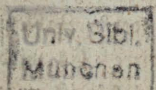 Univ. Bibl.
München